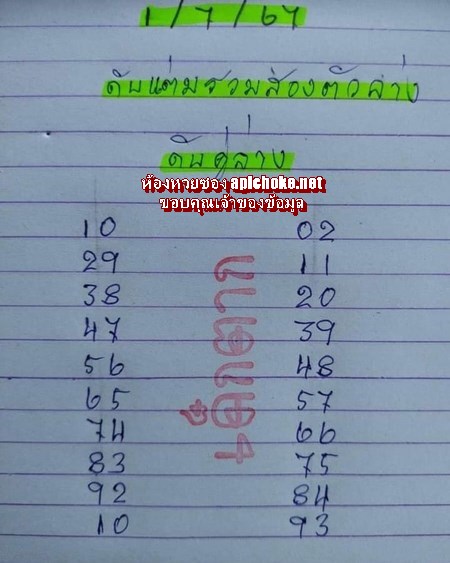 1/7/67
ดับแต้มรวมสองตัวล่าง
ดับคู่ล่าง
ห้องหวยซอง apichoke.net
ขอบคุณเจ้าของข้อมูล
10 02
29 11
38 20
47 39
56 48
65 57
74 66
83 75
92 84
10 93